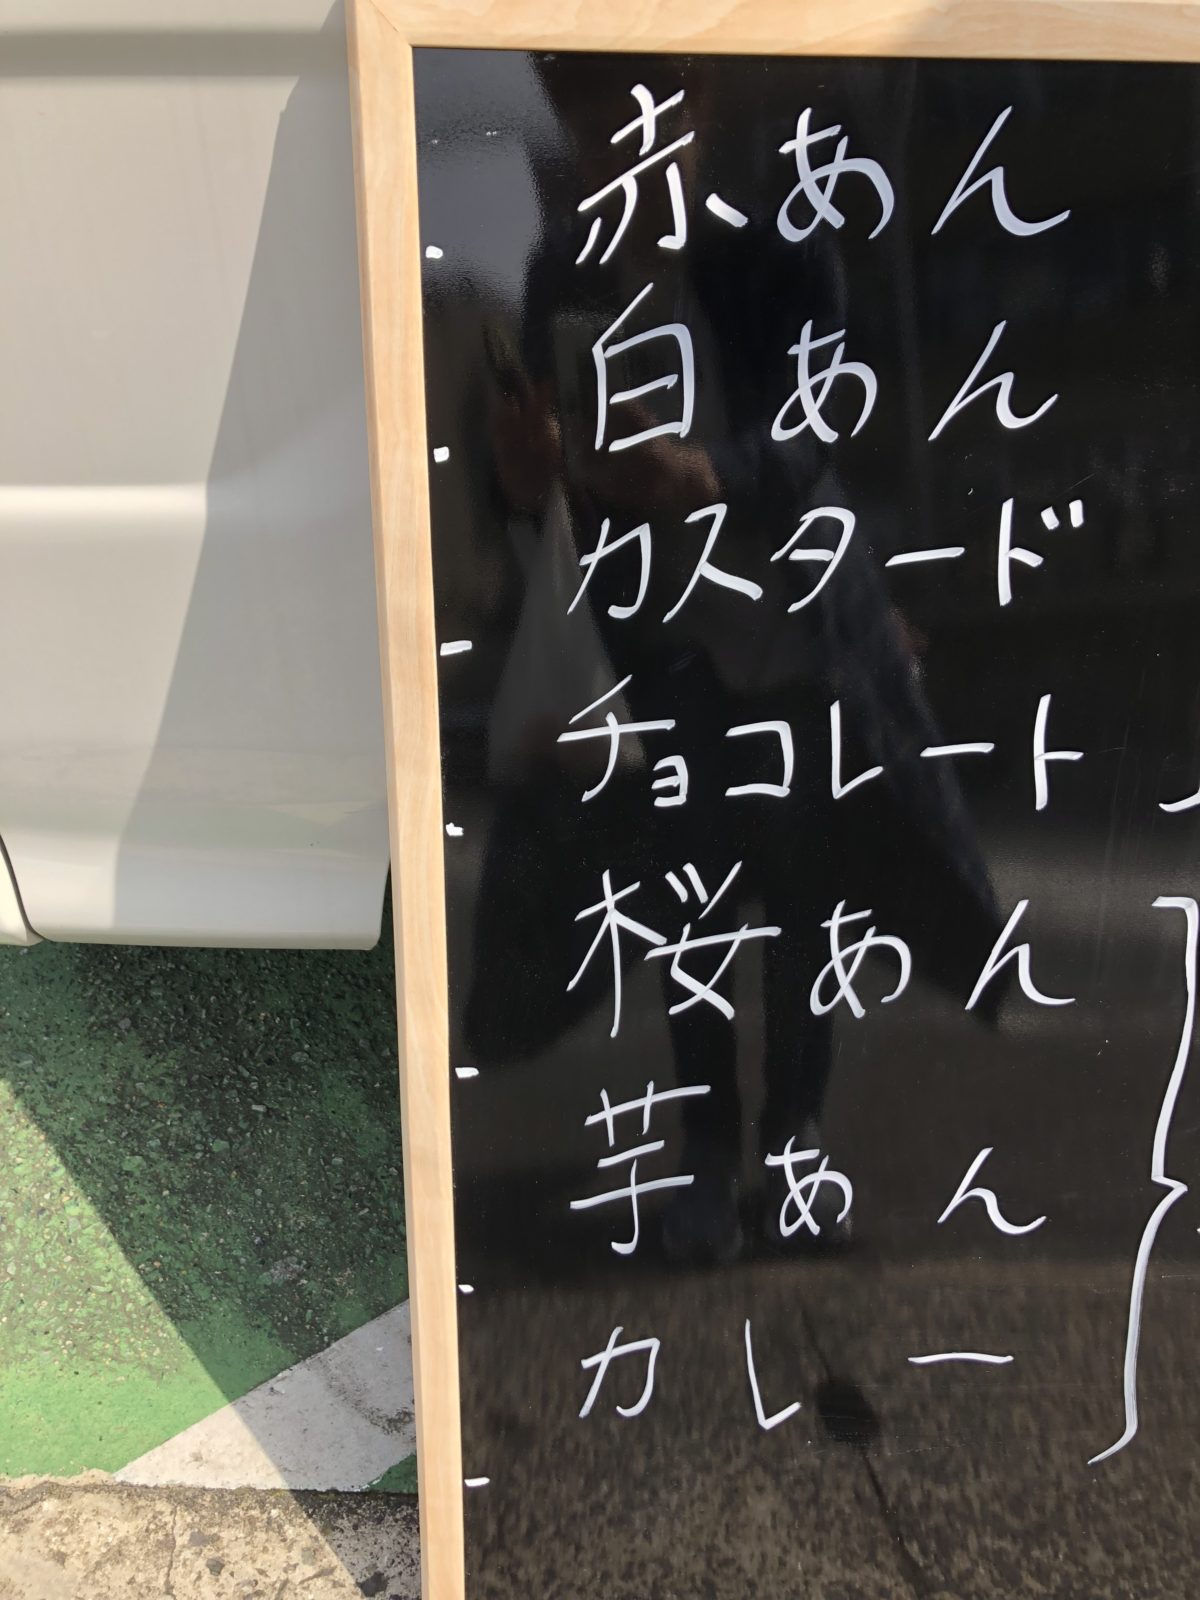 赤あん
白あん
カスタード
チョコレート
桜あん
芋あん
カレー